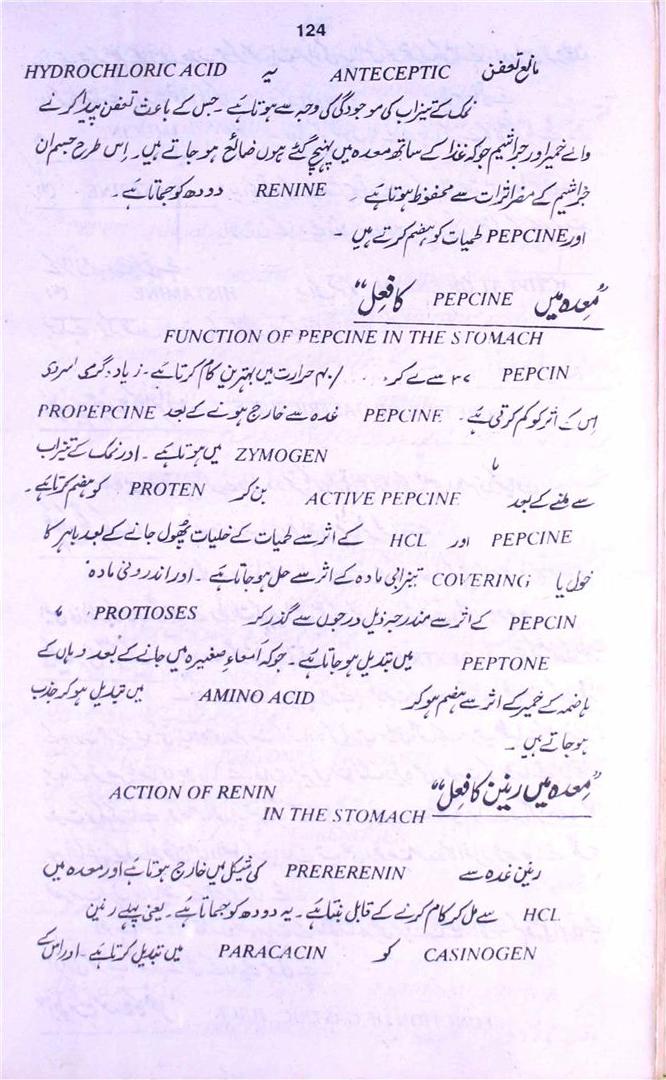 124
مانع تعفن ANTECEPTIC یہ HYDROCHLORIC ACID
نمک کے تیزاب کی موجودگی کی وجہ سے ہوتا ہے ۔ جس کے باعث تعفن پیدا کرنے
والے خمیر اور جراثیم جو کہ غذا کے ساتھ معدہ میں پہنچ گئے ہوں ضائع ہو جاتے ہیں۔ اس طرح جسم ان
جراثیم کے مضر اثرات سے محفوظ ہوتا ہے ۔ RENINE دودھ کو جماتا ہے ۔
اور PEPCINE لحمیات کو ہضم کرتے ہیں
”معدہ میں PEPCINE کا فعل“
FUNCTION OF PEPCINE IN THE STOMACH
PEPCIN ۳۷ سے لے کر ۴۰ حرارت میں بہترین کام کرتا ہے۔ زیادہ گرمی اسردی
اس کے اثر کو کم کرتی ہے ۔ PEPCINE غدہ سے خارج ہونے کے بعد PROPEPCINE
یا ZYMOGEN میں ہوتا ہے ۔ اور نمک کے تیزاب
سے ملنے کے بعد ACTIVE PEPCINE بن کر PROTEN کو ہضم کرتا ہے ۔
PEPCINE اور HCL کے اثر سے لحمیات کے خلیات پھول جانے کے بعد باہر کا
خول یا COVERING تیزابی مادہ کے اثر سے حل ہو جاتا ہے ۔ اور اندرونی مادہ
PEPCIN کے اثر سے مندرجہ ذیل درجوں سے گذر کر PROTIOSES ،
PEPTONE میں تبدیل ہو جاتا ہے ۔ جو کہ امعاء صغیرہ میں جانے کے بعد وہاں کے
ہاضمہ کے خمیر کے اثر سے ہضم ہو کر AMINO ACID میں تبدیل ہو کر جذب
ہو جاتے ہیں ۔
”معدہ میں رینن کا فعل“ ACTION OF RENIN
IN THE STOMACH
رینن غدہ سے PRERERENIN کی شکل میں خارج ہوتا ہے اور معدہ میں
HCL سے مل کر کام کرنے کے قابل بنتا ہے ۔ یہ دودھ کو جماتا ہے ۔ یعنی پہلے رینن
CASINOGEN کو PARACACIN میں تبدیل کرتا ہے ۔ اور اس کے